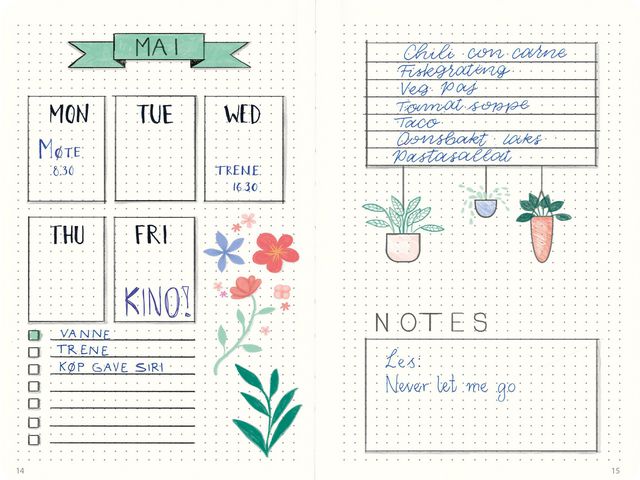 MAI
MON
TUE
WED
MØTE
8.30
TRENE
16.30
THU
FRI
KINO!
VANNE
TRENE
KØP GAVE SIRI
14
Chili con carne
Fiskegrateng
Veg. pas
Tomat soppe
Taco
Ovnsbakt laks
Pastasallat
NOTES
Les:
Never let me go
15